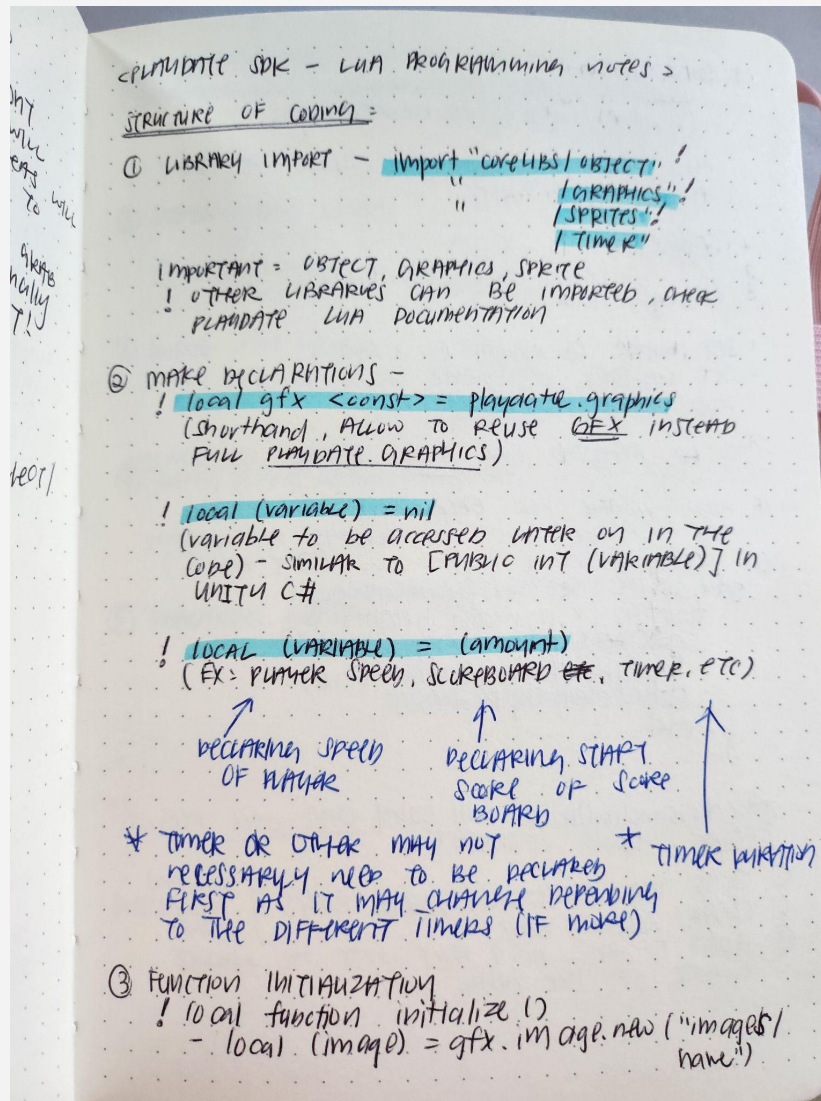 <PLAYDATE SDK - LUA PROGRAMMING NOTES>
STRUCTURE OF CODING =
① LIBRARY IMPORT - import "CORELIBS/OBJECT" !
" /GRAPHICS" !
" /SPRITES" !
/TIMER"
IMPORTANT = OBJECT, GRAPHICS, SPRITE
! OTHER LIBRARIES CAN BE IMPORTED, CHECK
PLAYDATE LUA DOCUMENTATION
② MAKE DECLARATIONS -
! local gfx <const> = playdate.graphics
(Shorthand, ALLOW TO REUSE GFX INSTEAD
FULL PLAYDATE.GRAPHICS)
! local (variable) = nil
(variable to be accessed LATER ON IN THE
CODE) - SIMILAR TO [PUBLIC INT (VARIABLE)] IN
UNITY C#
! LOCAL (VARIABLE) = (amount)
(EX: PLAYER SPEED, SCOREBOARD etc, TIMER, ETC)
DECLARING SPEED
OF PLAYER
DECLARING START
SCORE OF SCORE
BOARD
* TIMER DURATION
* TIMER OR OTHER MAY NOT
NECESSARY NEED TO BE DECLARED
FIRST AS IT MAY CHANGE DEPENDING
TO THE DIFFERENT TIMERS (IF MORE)
③ FUNCTION INITIALIZATION
! local function initialize ()
- local (image) = gfx.image.new ("images/
name")